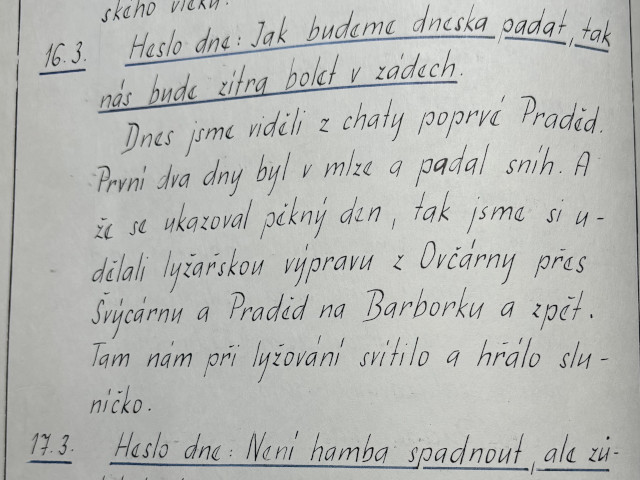 ského vleku.
16.3. Heslo dne: Jak budeme dneska padat, tak
nás bude zítra bolet v zádech.
Dnes jsme viděli z chaty poprvé Praděd.
První dva dny byl v mlze a padal sníh. A
že se ukazoval pěkný den, tak jsme si u-
dělali lyžařskou výpravu z Ovčárny přes
Švýcárnu a Praděd na Barborku a zpět.
Tam nám při lyžování svítilo a hřálo slu-
níčko.
17.3. Heslo dne: Není hamba spadnout, ale zů-